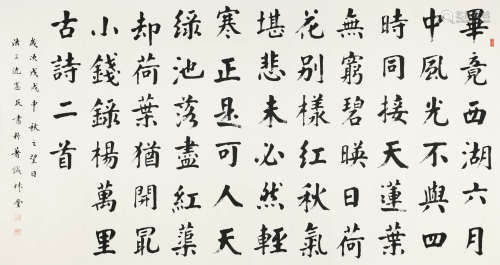 畢竟西湖六月
中風光不與四
時同接天蓮葉
無窮碧暎日荷
花別樣紅秋氣
堪悲未必然輕
寒正是可人天
綠池落盡紅蕖
却荷葉猶開㝡
小錢錄楊萬里
古詩二首
歲次戊戌中秋之望日